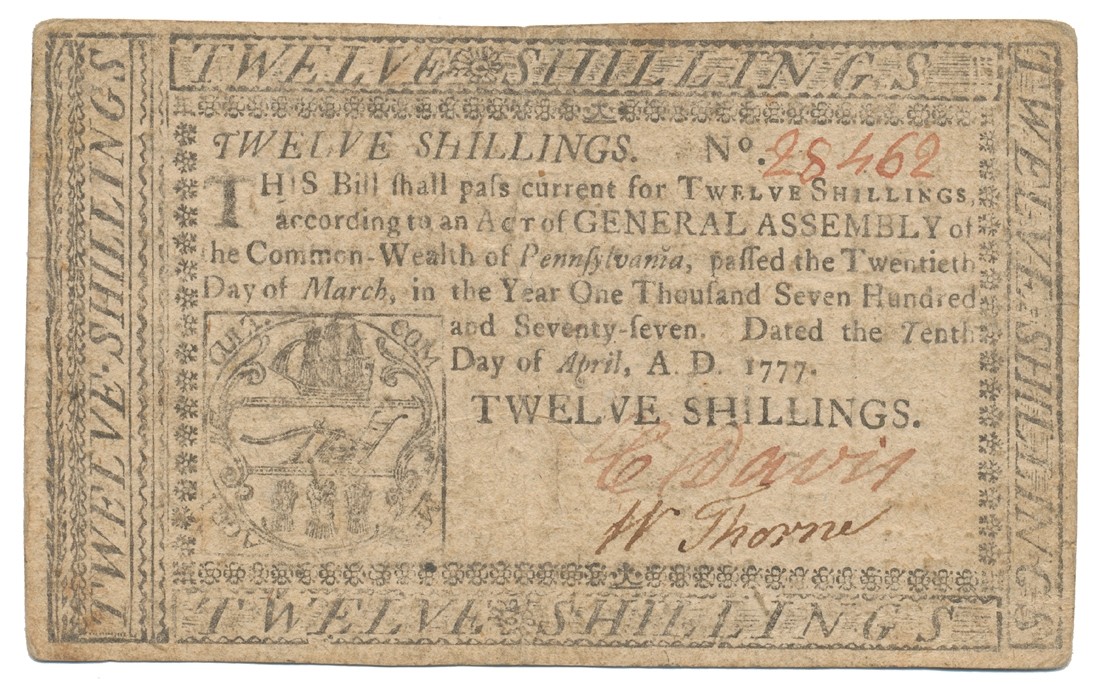 TWELVE SHILLINGS
TWELVE SHILLINGS. No. 28462
THIS Bill ſhall paſs current for TWELVE SHILLINGS,
according to an ACT of GENERAL ASSEMBLY of
the Common-Wealth of Pennſylvania, paſſed the Twentieth
Day of March, in the Year One Thouſand Seven Hundred
and Seventy-ſeven. Dated the Tenth
Day of April, A. D. 1777.
TWELVE SHILLINGS.
C Davis
W Thorne
TWELVE SHILLINGS
TWELVE-SHILLINGS
TWELVE-SHILLINGS
COM